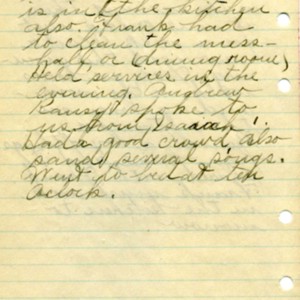 is in the kitchen
also. Frank had
to clean the mess-
hall or (dining room)
Held services in the
evening. Andrew
spoke to
us from Isaaah.
Had a good crowd, also
sand several songs.
Went to bed at ten
Oclock.